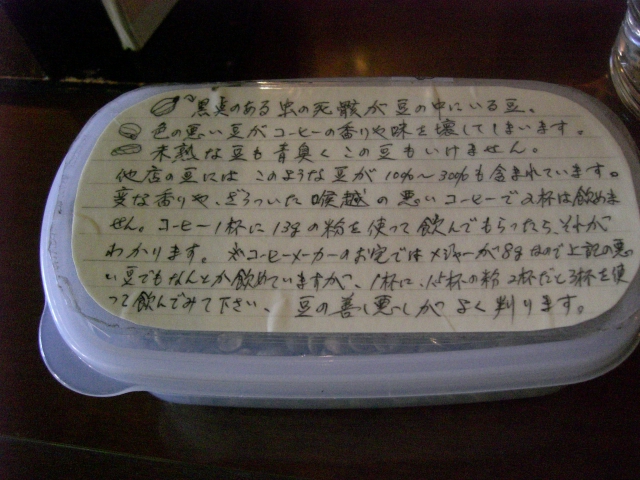 黒点のある虫の死骸が豆の中にいる豆、
色の悪い豆がコーヒーの香りや味を壊してしまいます。
未熟な豆も青臭くこの豆もいけません。
他店の豆にはこのような豆が10%〜30%も含まれています。
変な香りや、ざらついた喉越の悪いコーヒーで2杯は飲めま
せん。コーヒー1杯に13gの粉を使って飲んでもらったら、それが
わかります。 コーヒーメーカーのお宅ではメジャーが8gなので上記の悪
い豆でもなんとか飲めていますが、1杯に、1.5杯の粉 2杯だと3杯を使
って飲んでみて下さい、 豆の善し悪しがよく判ります。